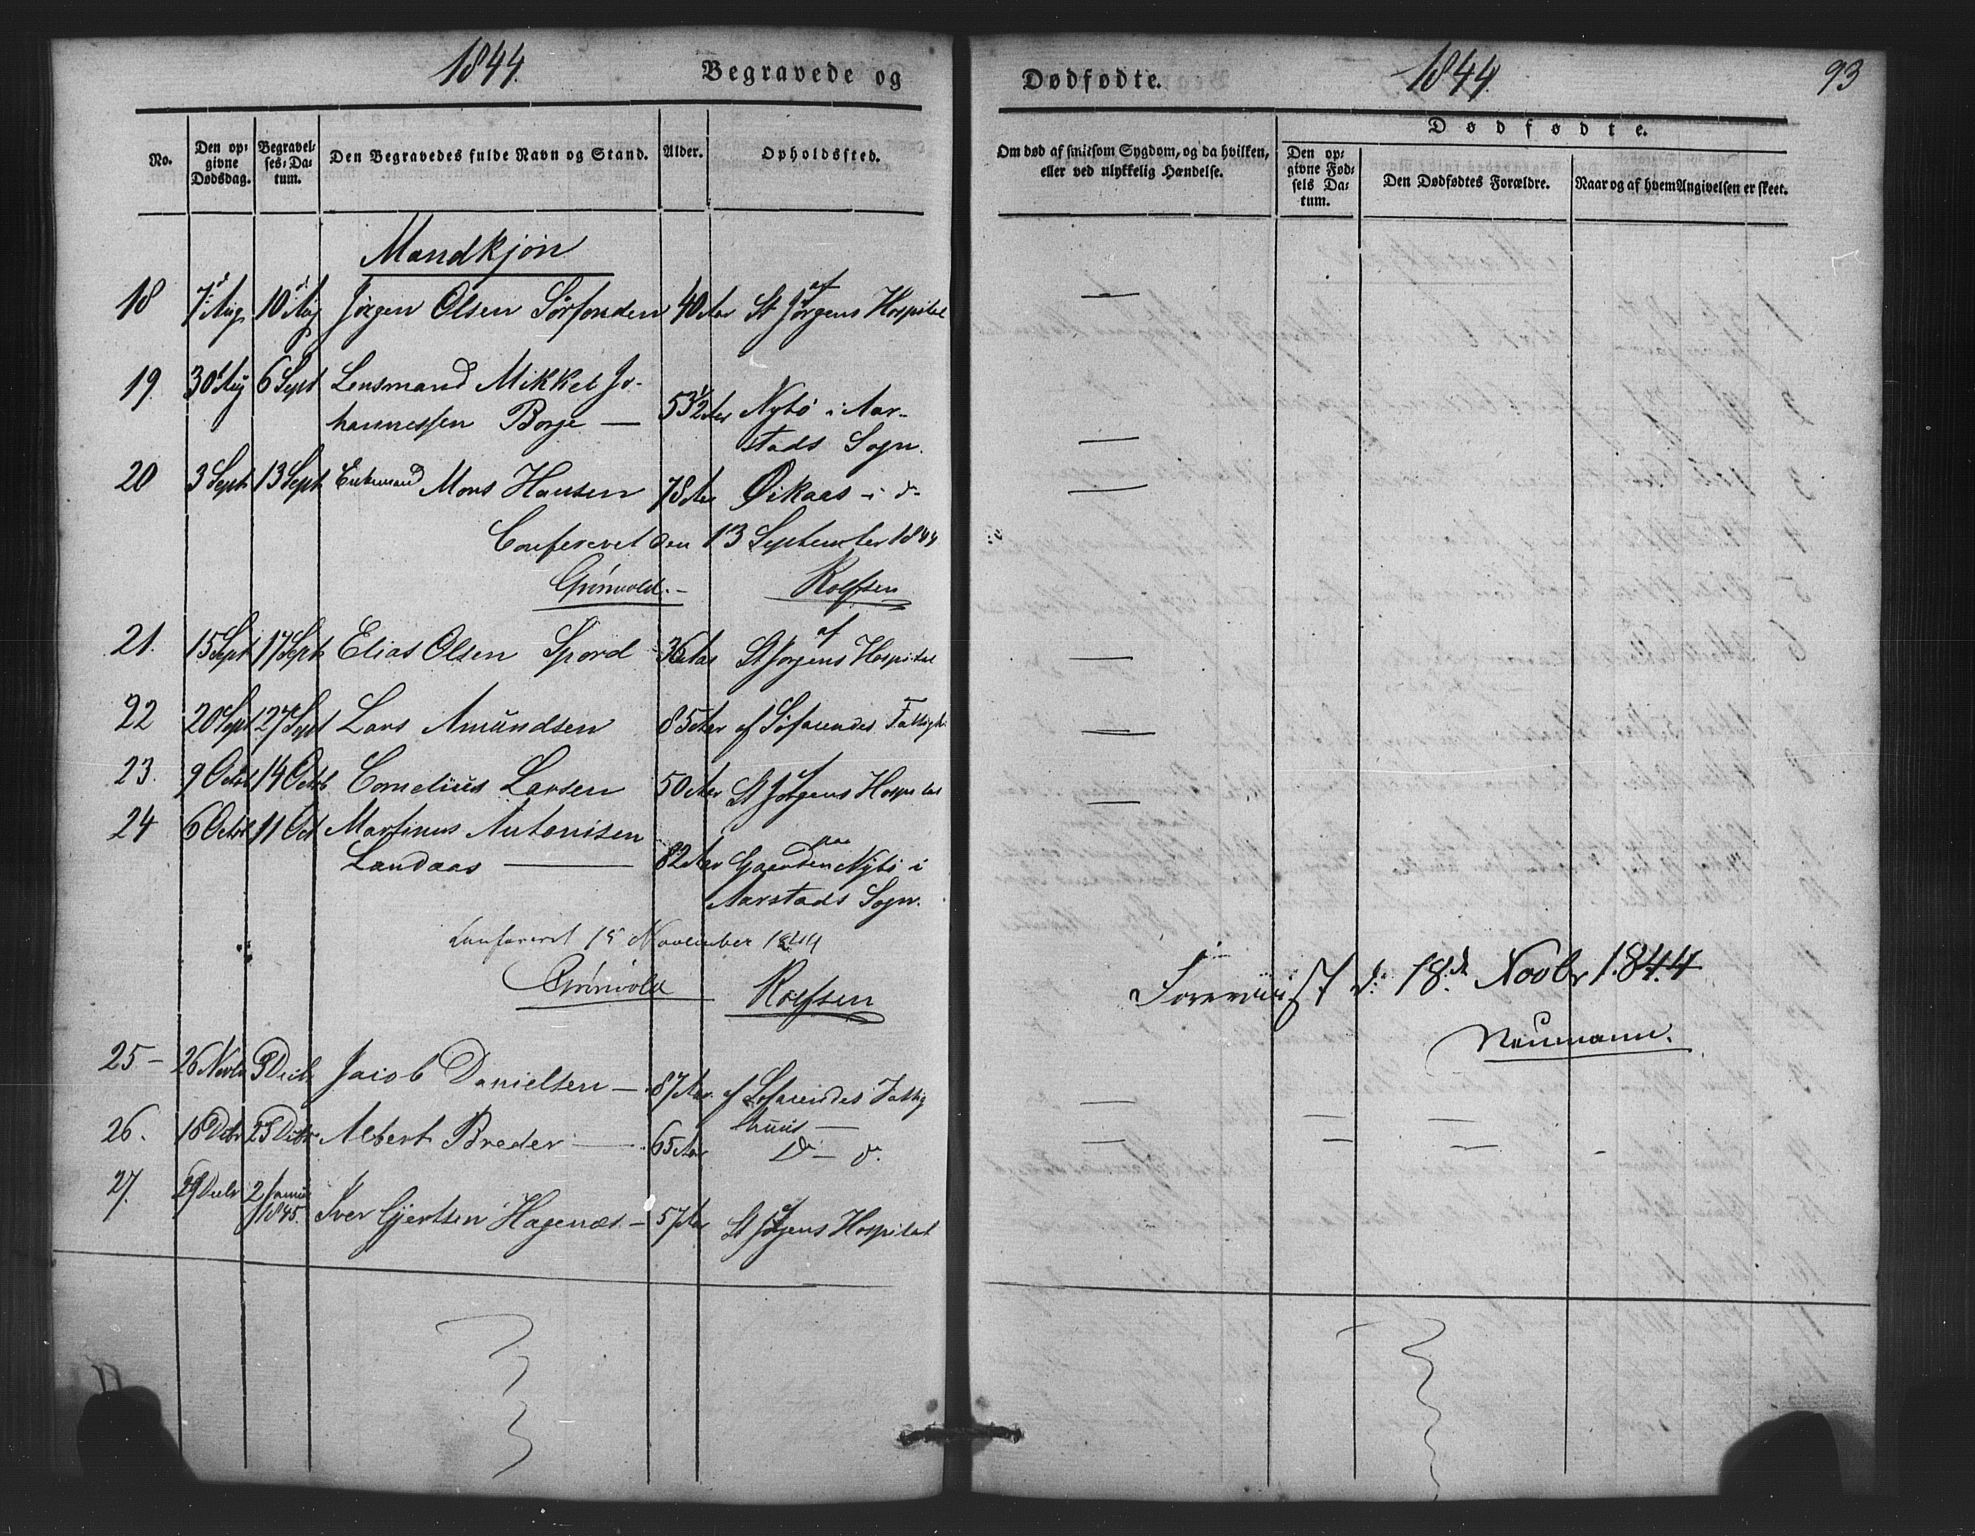 1844.
Begravede og
Dødfødte.
1844
93
No.
Den op-
givne
Dødsdag.
Begravel-
ses-Da-
tum.
Den Begravedes fulde Navn og Stand.
Alder.
Opholdssted.
Om død af smitsom Sygdom, og da hvilken,
eller ved ulykkelig Hændelse.
Dødfødte.
Den op-
givne Fød-
sels Da-
tum.
Den Dødfødtes Forældre.
Naar og af hvem Angivelsen er skeet.
Mandkjøn
18 7 Aug 10 Aug Jørgen Olsen Sørfonden 40 Aar af St Jørgens Hospital —
19 30 Aug 6 Sept Lensmand Mikkel Jo-
hannessen Borge — 53½ Aar Nybø i Aar-
stads Sogn. —
20 3 Sept 13 Sept Enkemand Mons Hansen 78 Aar Øikaas i do —
Confereret den 13 September 1844
Grönvold. Rolfsen
21. 15 Sept 17 Sept Elias Olsen Spord 36 Aar af St Jørgens Hospital —
22 20 Sept 27 Sept Lars Amundsen 85 Aar af Søfarendes Fattigh. —
23. 9 Octbr 14 Octb Cornelius Larsen 50 Aar af St Jørgens Hospital —
24 6 Octbr 11 Oct Martinus Antonisen
Landaas — 82 Aar paa Gaarden Nybø i
Aarstads Sogn.
Confereret 15 November 1844
Grönvold Rolfsen
d: 18d. Novbr 1844
Neumann.
25 — 26 Novbr Decb Jacob Danielsen — 87 Aar. af Søfarendes Fattig
huus — —
26. 18 Decbr 23 Decbr Albert Breder — 65 Aar Do — do. —
27. 29 Decbr 2 Januar
1845. Iver Gjertsen Hagenæs — 57 Aar af St Jørgens Hospital